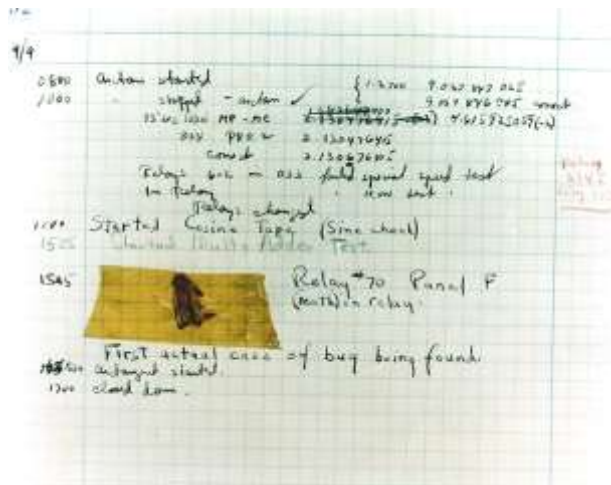 9/9
0800 antan started
1000 " stopped - antan ✓ { 1.2700 9.037 847 025
9.037 846 995 correct
13" uc (032) MP - MC 4.615925059(-2)
(033) PRO 2 2.130476415
correct 2.130676415
Relays 6-2 in 033 failed special speed test
in relay " test.
Relays changed
1100 Started Cosine Tape (Sine check)
1525 Started Multi Adder Test.
1545 Relay #70 Panel F
(moth) in relay.
First actual case of bug being found.
antangent started.
1700 closed down.